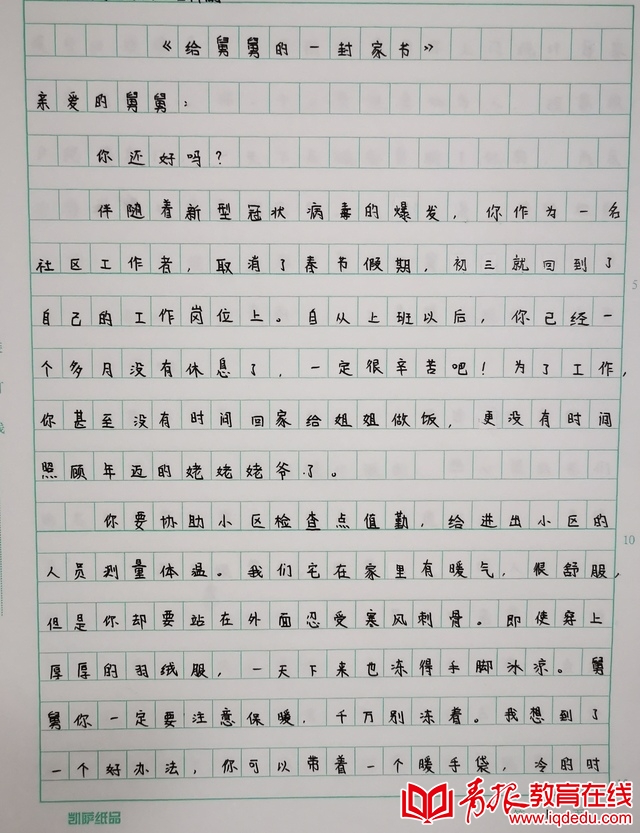 《给舅舅的一封家书》
亲爱的舅舅：
你还好吗？
伴随着新型冠状病毒的爆发，你作为一名
社区工作者，取消了春节假期，初三就回到了
自己的工作岗位上。自从上班以后，你已经一
个多月没有休息了，一定很辛苦吧！为了工作，
你甚至没有时间回家给姐姐做饭，更没有时间
照顾年迈的姥姥姥爷了。
你要协助小区检查点值勤，给进出小区的
人员测量体温。我们宅在家里有暖气，很舒服，
但是你却要站在外面忍受寒风刺骨。即使穿上
厚厚的羽绒服，一天下来也冻得手脚冰凉。舅
舅你一定要注意保暖，千万别冻着。我想到了
一个好办法，你可以带着一个暖手袋，冷的时
5
10
凯萨纸品
青报教育在线
www.iqdedu.com